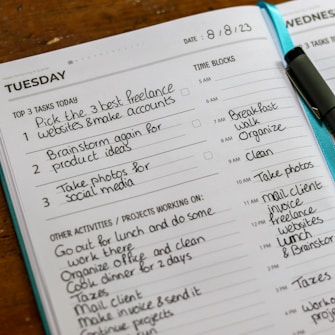 DATE: 8/8/23
TUESDAY
WEDNES
TOP 3 TASKS TODAY
1 Pick the 3 best freelance
websites & make accounts
2 Brainstorm again for
product ideas
3 Take photos for
social media
OTHER ACTIVITIES / PROJECTS WORKING ON:
Go out for lunch and do some
work there
Organize office and clean
Cook dinner for 2 days
Taxes
Mail client
Make invoice & send it
Continue projects
TIME BLOCKS
5 AM
6 AM
7 AM Breakfast
walk
8 AM Organize
9 AM clean
10 AM Take photos
11 AM mail client
invoice
12 PM freelance
websites
1 PM lunch
2 PM & Brainstorm
3 PM Taxes
4 PM
TOP 3 TASKS
1
2